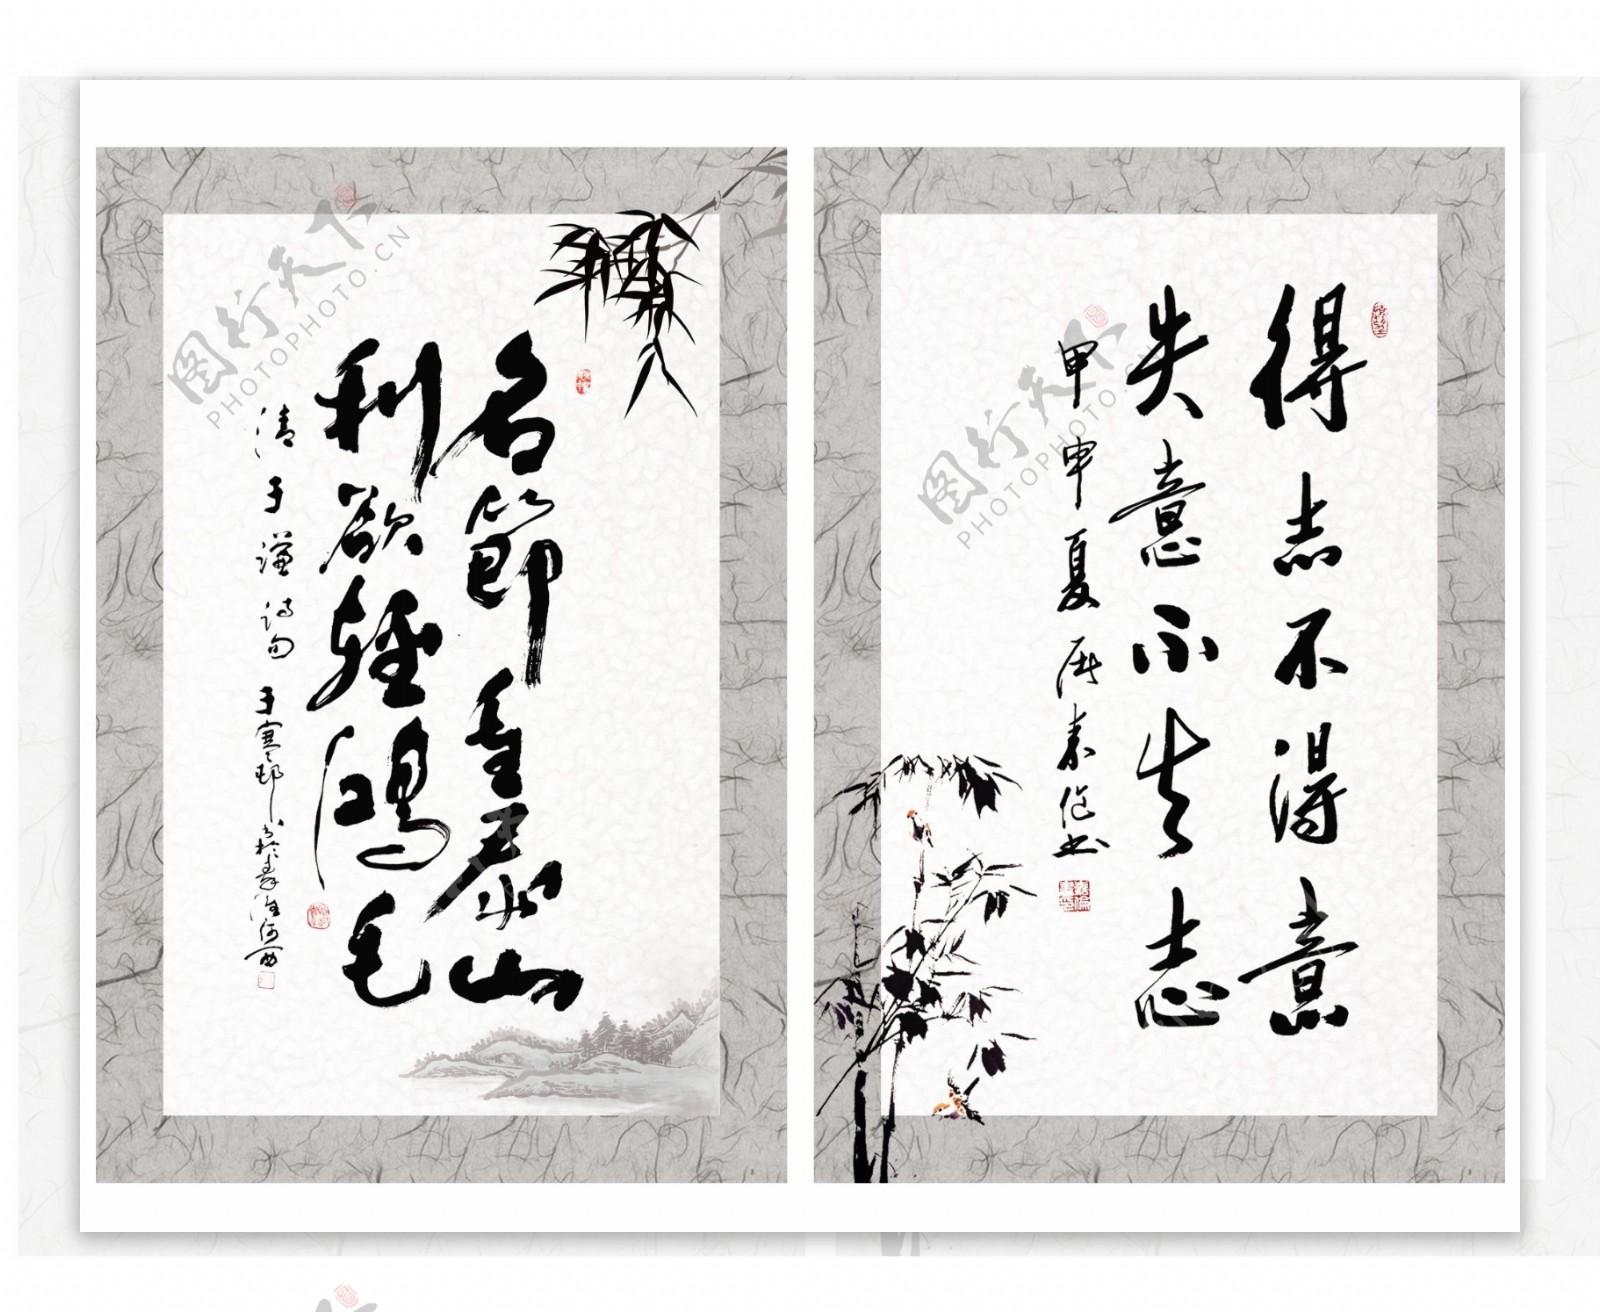 名節重泰山
利欲輕鴻毛
清于謙诗句
得志不得意
失意不失志
甲申夏
图行天下
PHOTOPHOTO.CN
图行天下
PHOTOPHOTO.CN